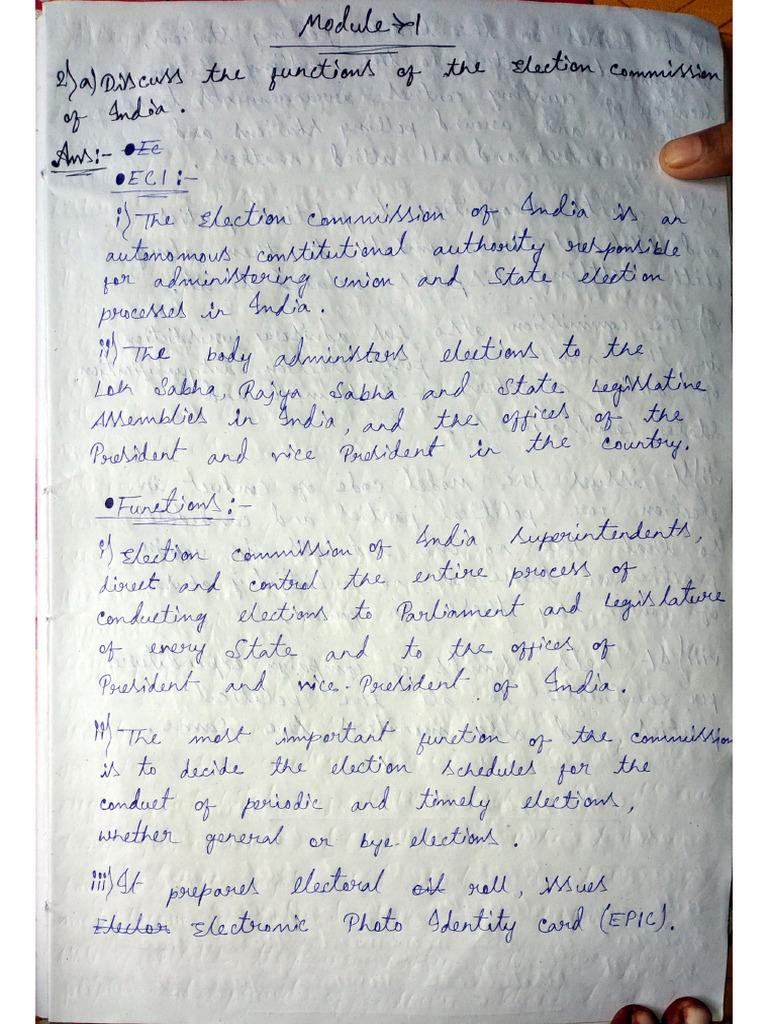 Module → 1
2) a) Discuss the functions of the Election Commission
of India.
Ans:- • Ec
• ECI :-
i) The Election Commission of India is an
autonomous constitutional authority responsible
for administering Union and State election
processes in India.
ii) The body administers elections to the
Lok Sabha, Rajya Sabha and State Legislative
Assemblies in India, and the offices of the
President and vice President in the country.
• Functions :-
i) Election commission of India Superintendents,
direct and control the entire process of
conducting elections to Parliament and Legislature
of every State and to the offices of
President and vice-President of India.
ii) The most important function of the commission
is to decide the election schedules for the
conduct of periodic and timely elections,
whether general or bye-elections.
iii) It prepares electoral roll, issues
Elector Electronic Photo Identity card (EPIC).